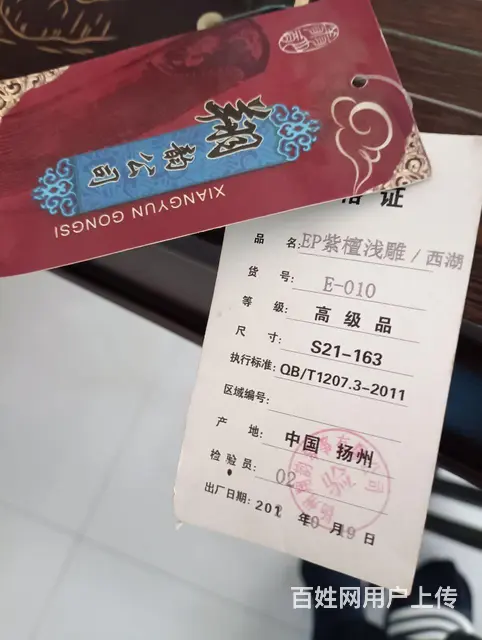 翔韵公司
XIANGYUN GONGSI
格 证
品 名: EP紫檀浅雕/西湖
货 号: E-010
等 级: 高级品
尺 寸: S21-163
执行标准: QB/T1207.3-2011
区域编号:
产 地: 中国 扬州
检 验 员: 02
出厂日期: 201 年 月 日
百姓网用户上传